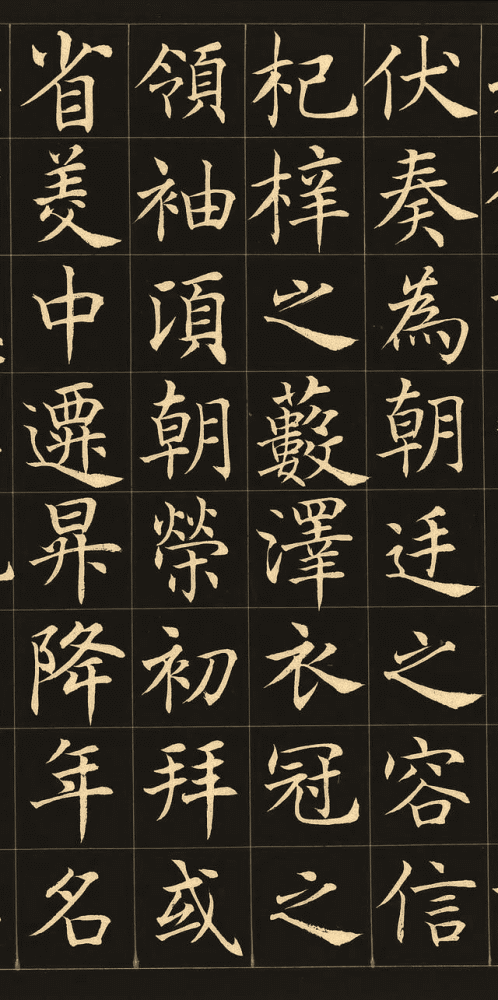 伏奏為朝廷之容信
杞梓之藪澤衣冠之
領袖湏朝榮初拜或
省美中遷昇降年名